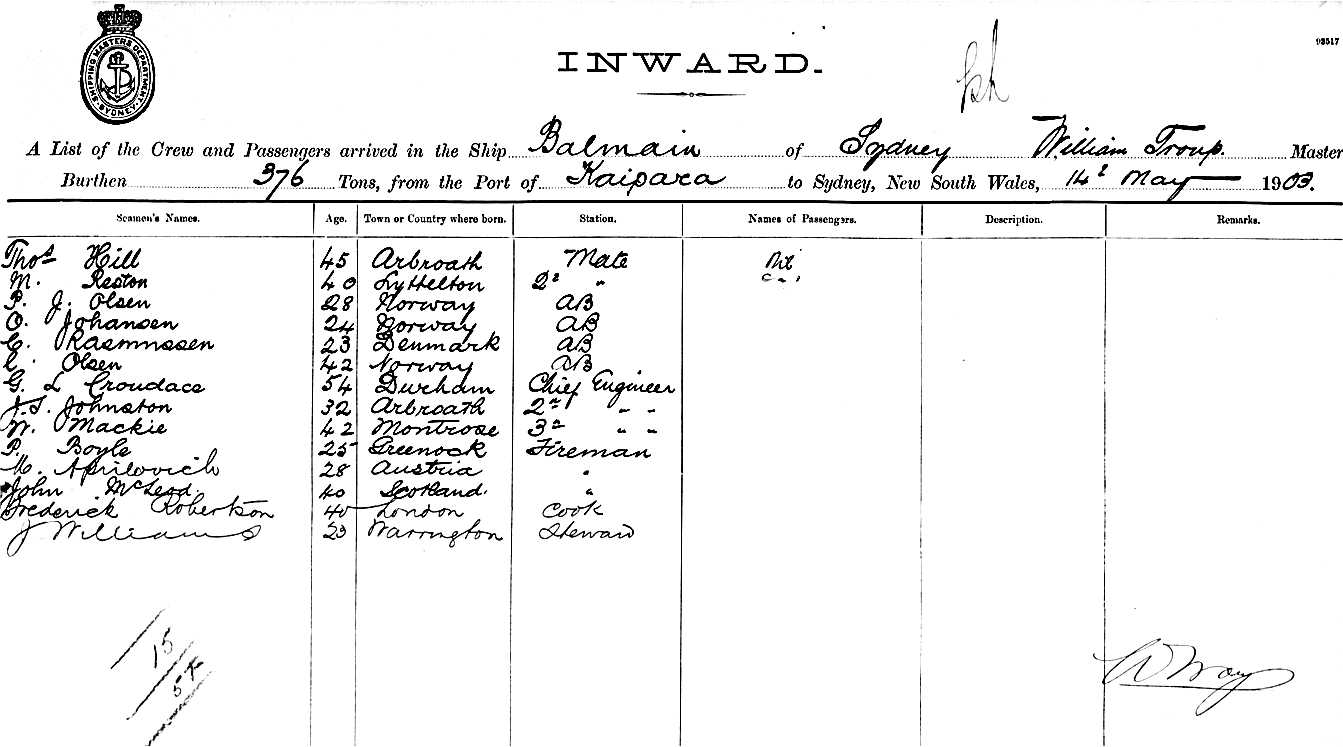 SHIPPING MASTERS DEPARTMENT SYDNEY
03517
INWARD.
A List of the Crew and Passengers arrived in the Ship Balmain of Sydney William Troup. Master
Burthen 376 Tons, from the Port of Kaipara to Sydney, New South Wales, 14th May 1903.
Seamen's Names. Age. Town or Country where born. Station. Names of Passengers. Description. Remarks.
Thos Hill 45 Arbroath Mate Nil
M. Reston 40 Lyttelton 2d "
P. J. Olsen 28 Norway AB
O. Johansen 24 Norway AB
C. Rasmussen 23 Denmark AB
C. Olsen 42 Norway AB
G. L Croudace 54 Durham Chief Engineer
J.S. Johnston 32 Arbroath 2nd " "
W. Mackie 42 Montrose 3rd " "
P. Boyle 25 Greenock Fireman
M. Aprilovich 28 Austria "
John McLeod. 40 Scotland. "
Frederick Robertson 40 London Cook
J Williams 23 Warrington Steward
15